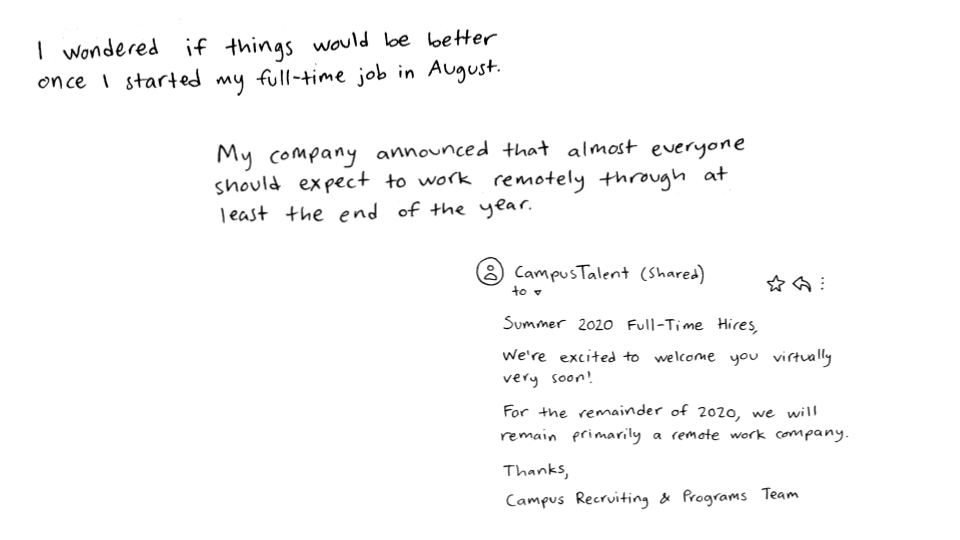 I wondered if things would be better
once I started my full-time job in August.
My company announced that almost everyone
should expect to work remotely through at
least the end of the year.
CampusTalent (Shared)
to
Summer 2020 Full-Time Hires,
We're excited to welcome you virtually
very soon!
For the remainder of 2020, we will
remain primarily a remote work company.
Thanks,
Campus Recruiting & Programs Team